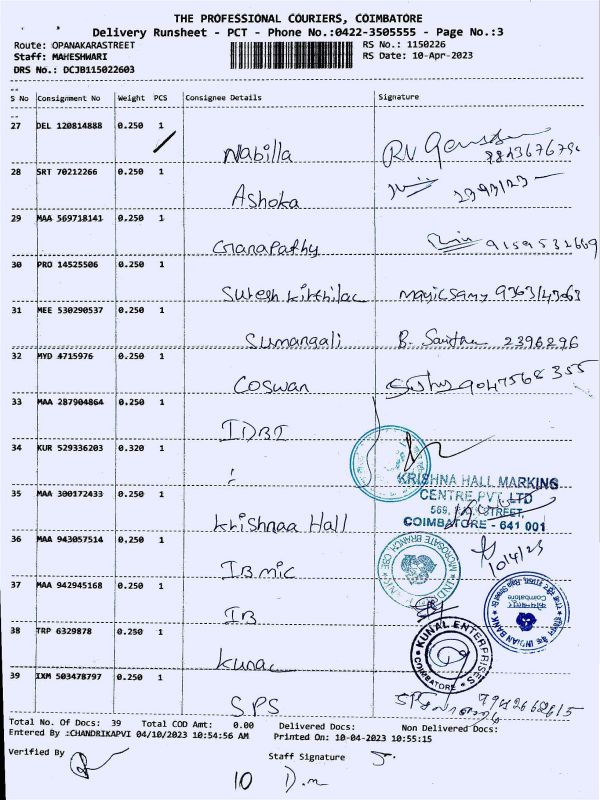 THE PROFESSIONAL COURIERS, COIMBATORE
Delivery Runsheet - PCT - Phone No.:0422-3505555 - Page No.:3
Route: OPANAKARASTREET RS No.: 1150226
Staff: MAHESHWARI RS Date: 10-Apr-2023
DRS No.: DCJB115022603
S No Consignment No Weight PCS Consignee Details Signature
27 DEL 120814888 0.250 1 Nabilla
28 SRT 70212266 0.250 1 Ashoka
29 MAA 569718141 0.250 1 Ganapathy 9159532669
30 PRO 14525506 0.250 1 Suresh
31 MEE 530290537 0.250 1 Sumangali B. 2396296
32 MYD 4715976 0.250 1 Coswan 9047568355
33 MAA 287904864 0.250 1 IDBI
34 KUR 529336203 0.320 1
KRISHNA HALL MARKING
CENTRE PVT LTD
35 MAA 300172433 0.250 1 Krishnaa Hall
STREET,
COIMBATORE - 641 001
36 MAA 943057514 0.250 1 IB mic
MICROSATE BRANCH, CBE
10/4/23
37 MAA 942945168 0.250 1 IB
INDIAN BANK
Coimbatore
38 TRP 6329878 0.250 1 Kunal
KUNAL ENTERPRISES
COIMBATORE
39 IXM 503478797 0.250 1 SPS
Total No. Of Docs: 39 Total COD Amt: 0.00 Delivered Docs: Non Delivered Docs:
Entered By :CHANDRIKAPVI 04/10/2023 10:54:56 AM Printed On: 10-04-2023 10:55:15
Verified By Staff Signature
10